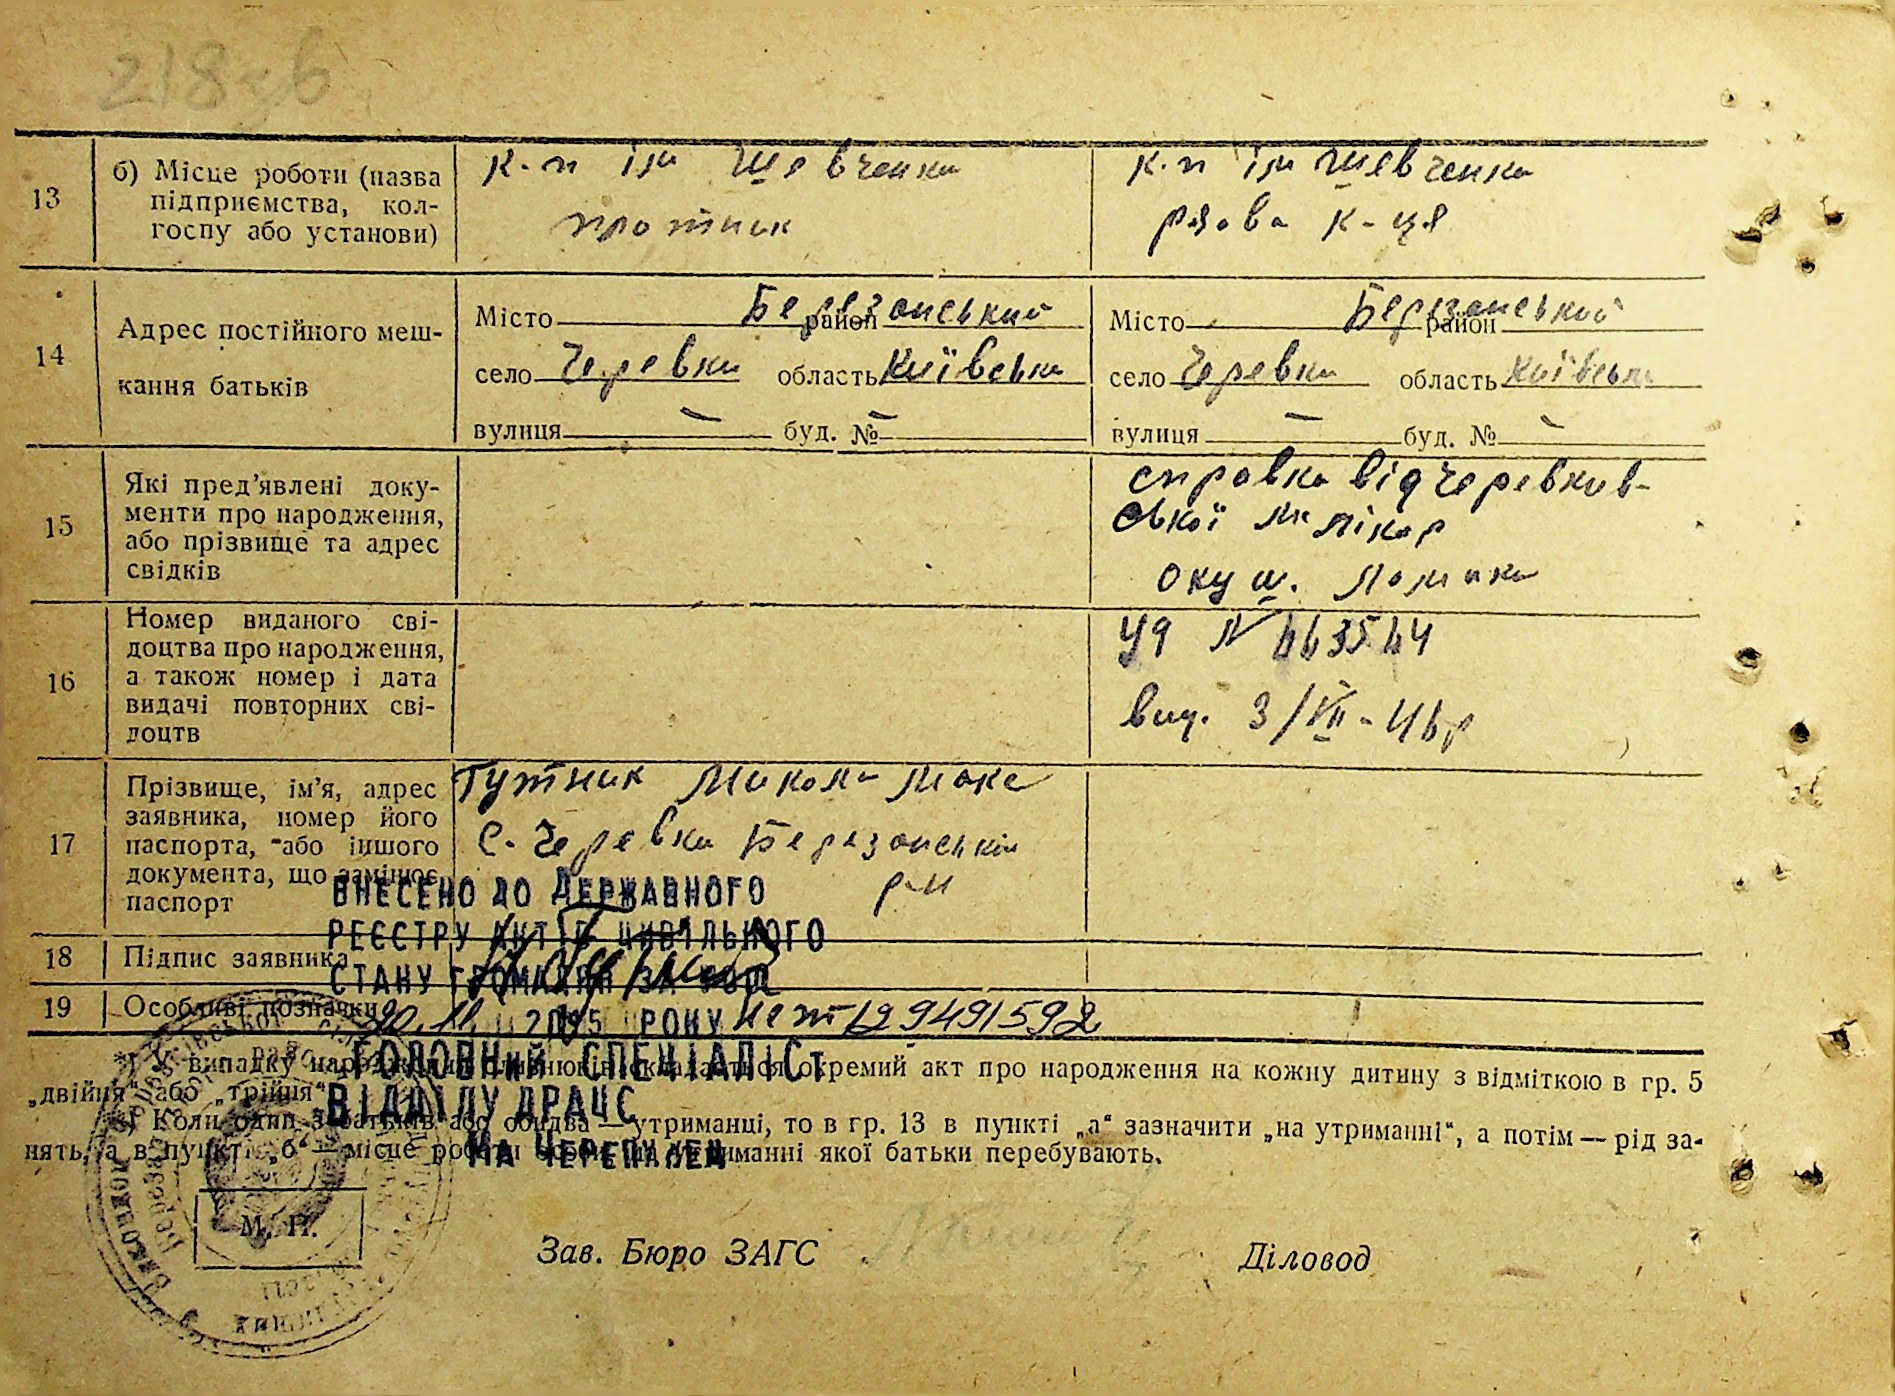 13
б) Місце роботи (назва
підприємства, кол-
госпу або установи)
к-п ім Шевченка
к-п ім Шевченка
рядова к-ця
14
Адрес постійного меш-
кання батьків
Місто район Березанський
село Черевки область Київська
вулиця – буд. № –
Місто район Березанський
село Черевки область Київська
вулиця – буд. № –
15
Які пред’явлені доку-
менти про народження,
або прізвище та адрес
свідків
справка від Черевків-
ської
окуш.
16
Номер виданого сві-
доцтва про народження,
а також номер і дата
видачі повторних сві-
доцтв
№ 443544
вид. 3/VII-46р
17
Прізвище, ім’я, адрес
заявника, номер його
паспорта, або іншого
документа, що замінює
паспорт
Тутник Микола
с. Черевки Березанський
р-н
18
Підпис заявника
19
Особливі позначки
ВНЕСЕНО ДО ДЕРЖАВНОГО
РЕЄСТРУ АКТІВ ЦИВІЛЬНОГО
СТАНУ ГРОМАДЯН ЗА
РОКУ
ГОЛОВНИЙ СПЕЦІАЛІСТ
ВІДДІЛУ ДРАЦС
*) У випадку народження близнюків складається окремий акт про народження на кожну дитину з відміткою в гр. 5
„двійня“ або „трійня“.
*) Коли один з батьків або обидва — утриманці, то в гр. 13 в пункті „а“ зазначити „на утриманні“, а потім — рід за-
нять, а в пункті „б“ — місце роботи особи, на утриманні якої батьки перебувають.
М. П.
Зав. Бюро ЗАГС
Діловод